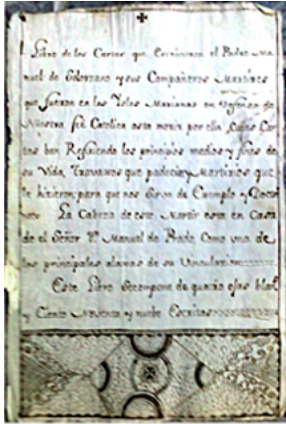 Libro de las Cartas que Escrivio el Padre Ma
nuel de Solorzano y sus Compañeros Martires
que fueron en las Yslas Marianas en Defensa de
Nuestra feé Catolica asta morir por ella Cuias Car
tas han Refundado los principios medios y fines de
su Vida, Travaxos que padecio y Martirios que
le hicieron, para que nos Sirva de Exemplo y
La Cabeza de este Martir esta en Casa
de el Señor Dn Manual de Prado, Como una de
las principales alaxas de su Vinculacion
Este Libro Secompone de quatro ojas blan
y Ciento y nuebe Escritas